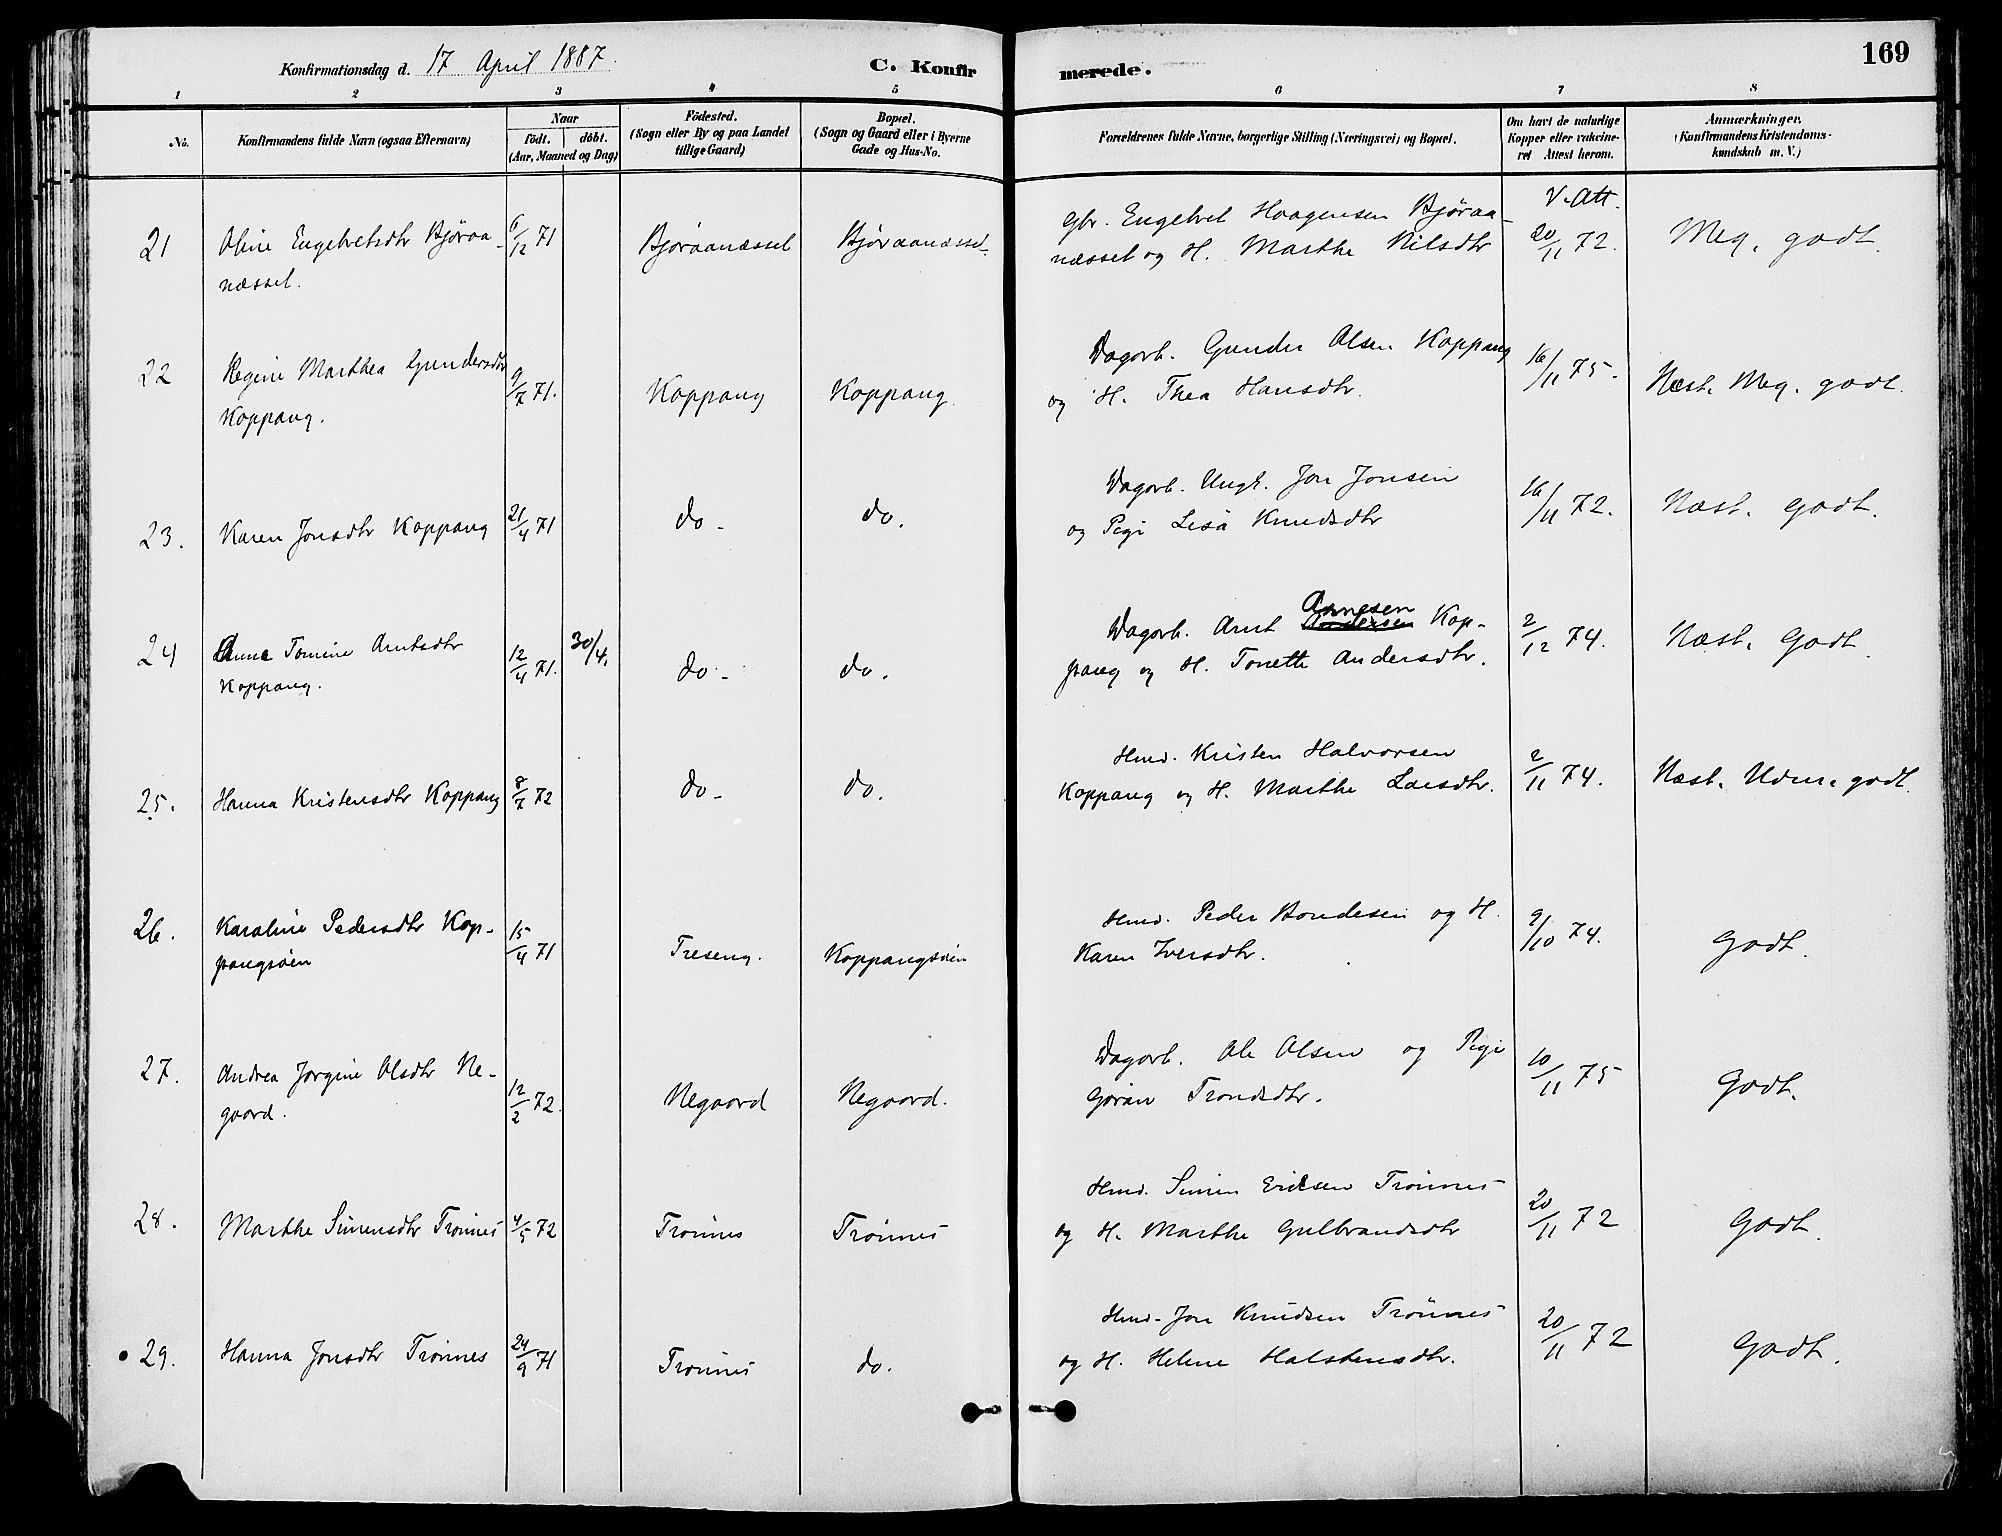 Konfirmationsdag d. 17 April 1887.
C. Konfirmerede.
169
1 2 3 4 5 6 7 8
No.
Konfirmandens fulde Navn (ogsaa Efternavn)
Naar
födt. döbt.
(Aar, Maaned og Dag)
Födested.
(Sogn eller By og paa Landet
tillige Gaard)
Bopæl.
(Sogn og Gaard eller i Byerne
Gade og Hus-No.
Forældrenes fulde Navne, borgerlige Stilling (Næringsvei) og Bopæl.
Om havt de naturlige
Kopper eller vakcine-
ret Attest herom.
Anmærkninger.
(Konfirmandens Kristendoms-
kundskab m. V.)
21 Oline Engebretsdtr Bjøraa-
næsset.
6/12 71
Bjøraanæsset
Bjøraanæsset
Gbr. Engebret Haagensen Bjøraa-
næsset og H. Marthe Nilsdtr
V. Att.
20/11 72.
Meg. godt.
22 Regine Marthea Gundersdtr
Koppang.
9/7 71.
Koppang
Koppang
Dagarb. Gunder Olsen Koppang
og H. Thea Hansdtr.
16/11 75.
Næst. Meg. godt.
23. Karen Jonsdtr Koppang
21/4 71
do-
do.
Dagarb. Ungk. Jon Jonsen
og Pige Lisa Knudsdtr
16/11 72.
Næst. godt.
24 Anne Tomine Arntsdtr
Koppang.
12/4 71.
30/4.
do-
do.
Arnesen
Dagarb. Arnt Andersen Kop-
pang og H. Tonette Andersdtr.
2/12 74.
Næst. Godt
25. Hanna Kristensdtr Koppang
8/7 72
do-
do.
Hmd. Kristen Halvorsen
Koppang og H. Marthe Larsdtr.
2/11 74.
Næst. Udm. godt.
26. Karoline Pedersdtr Kop-
pangsøien
15/4 71
Treseng.
Koppangsøien
Hmd. Peder Bondesen og H.
Karen Iversdtr.
9/10 74.
Godt.
27. Andrea Jørgine Olsdtr Ne-
gaard.
12/2 72.
Negaard
Negaard.
Dagarb. Ole Olsen og Pige
Gøran Trondsdtr.
10/11 75
Godt.
28. Marthe Simensdtr Trønnes
4/5 72
Trønnes
Trønnes
Hmd. Simen Ericsen Trønnes
og H. Marthe Gulbrandsdtr
20/11 72
Godt.
29. Hanna Jonsdtr Trønnes
24/9 71
Trønnes
do.
Hmd. Jon Knudsen Trønnes
og H. Helene Halstensdtr.
20/11 72
Godt.